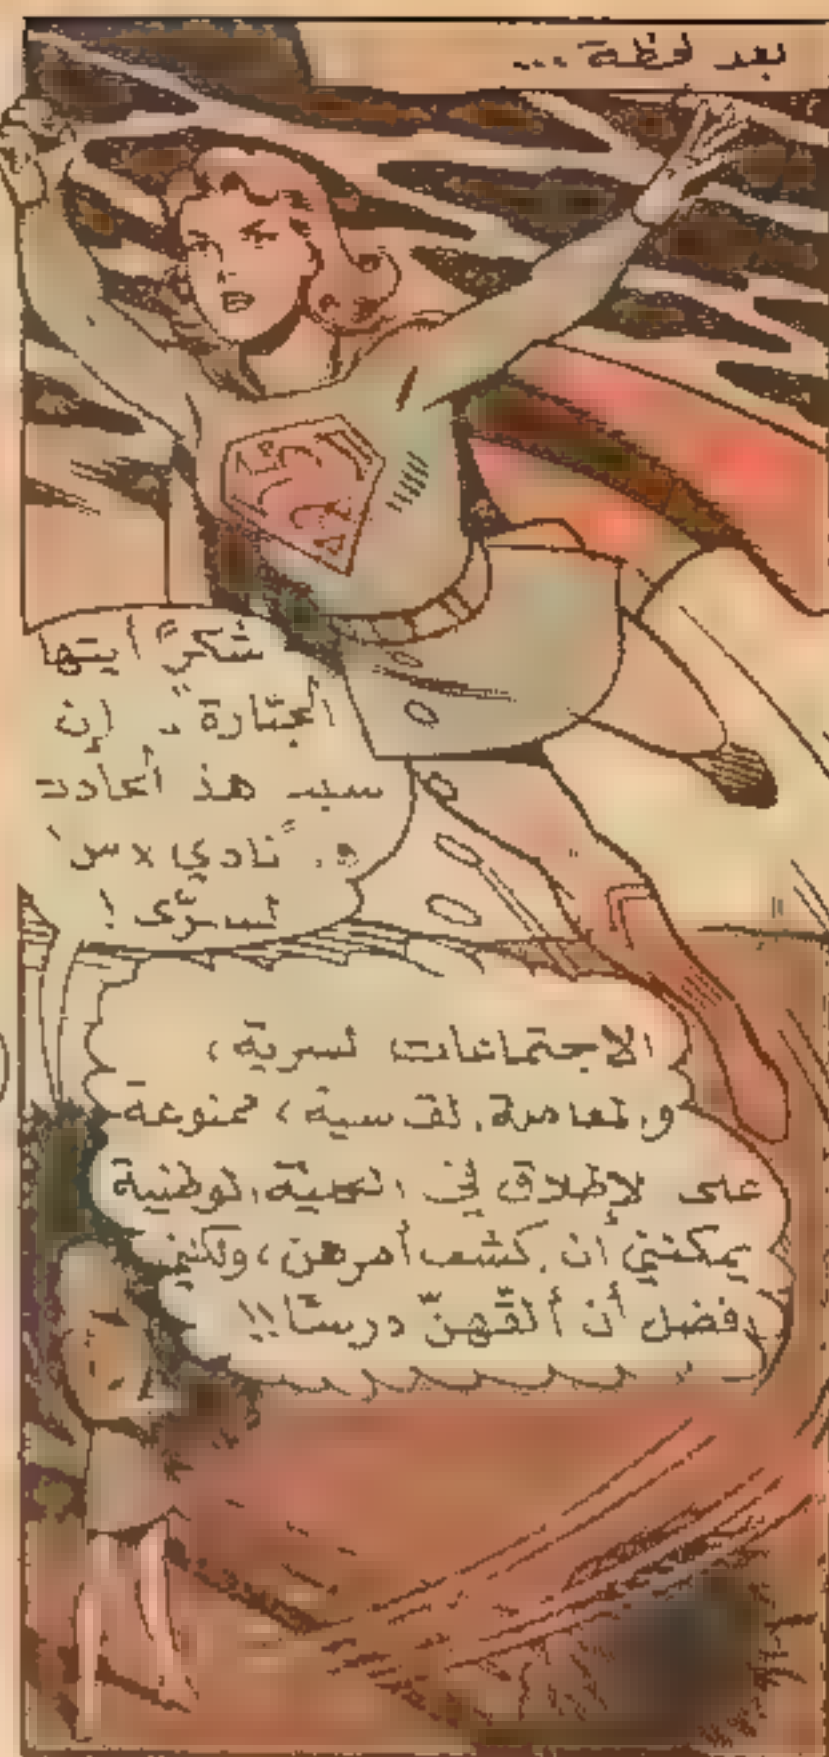 بعد لحظة ...
شكرًا أيتها
الجبّارة". إن
سبب هذ الحادث
و. "نادي لاس
لسرّي !
الاجتماعات لسرية ،
و لمعاملة القاسية ، ممنوعة
على لإطلاق في الكلية الوطنية
يمكنني أن كشف أمرهن ، ولكني
فضل أن ألقّنهنّ درسًا !!